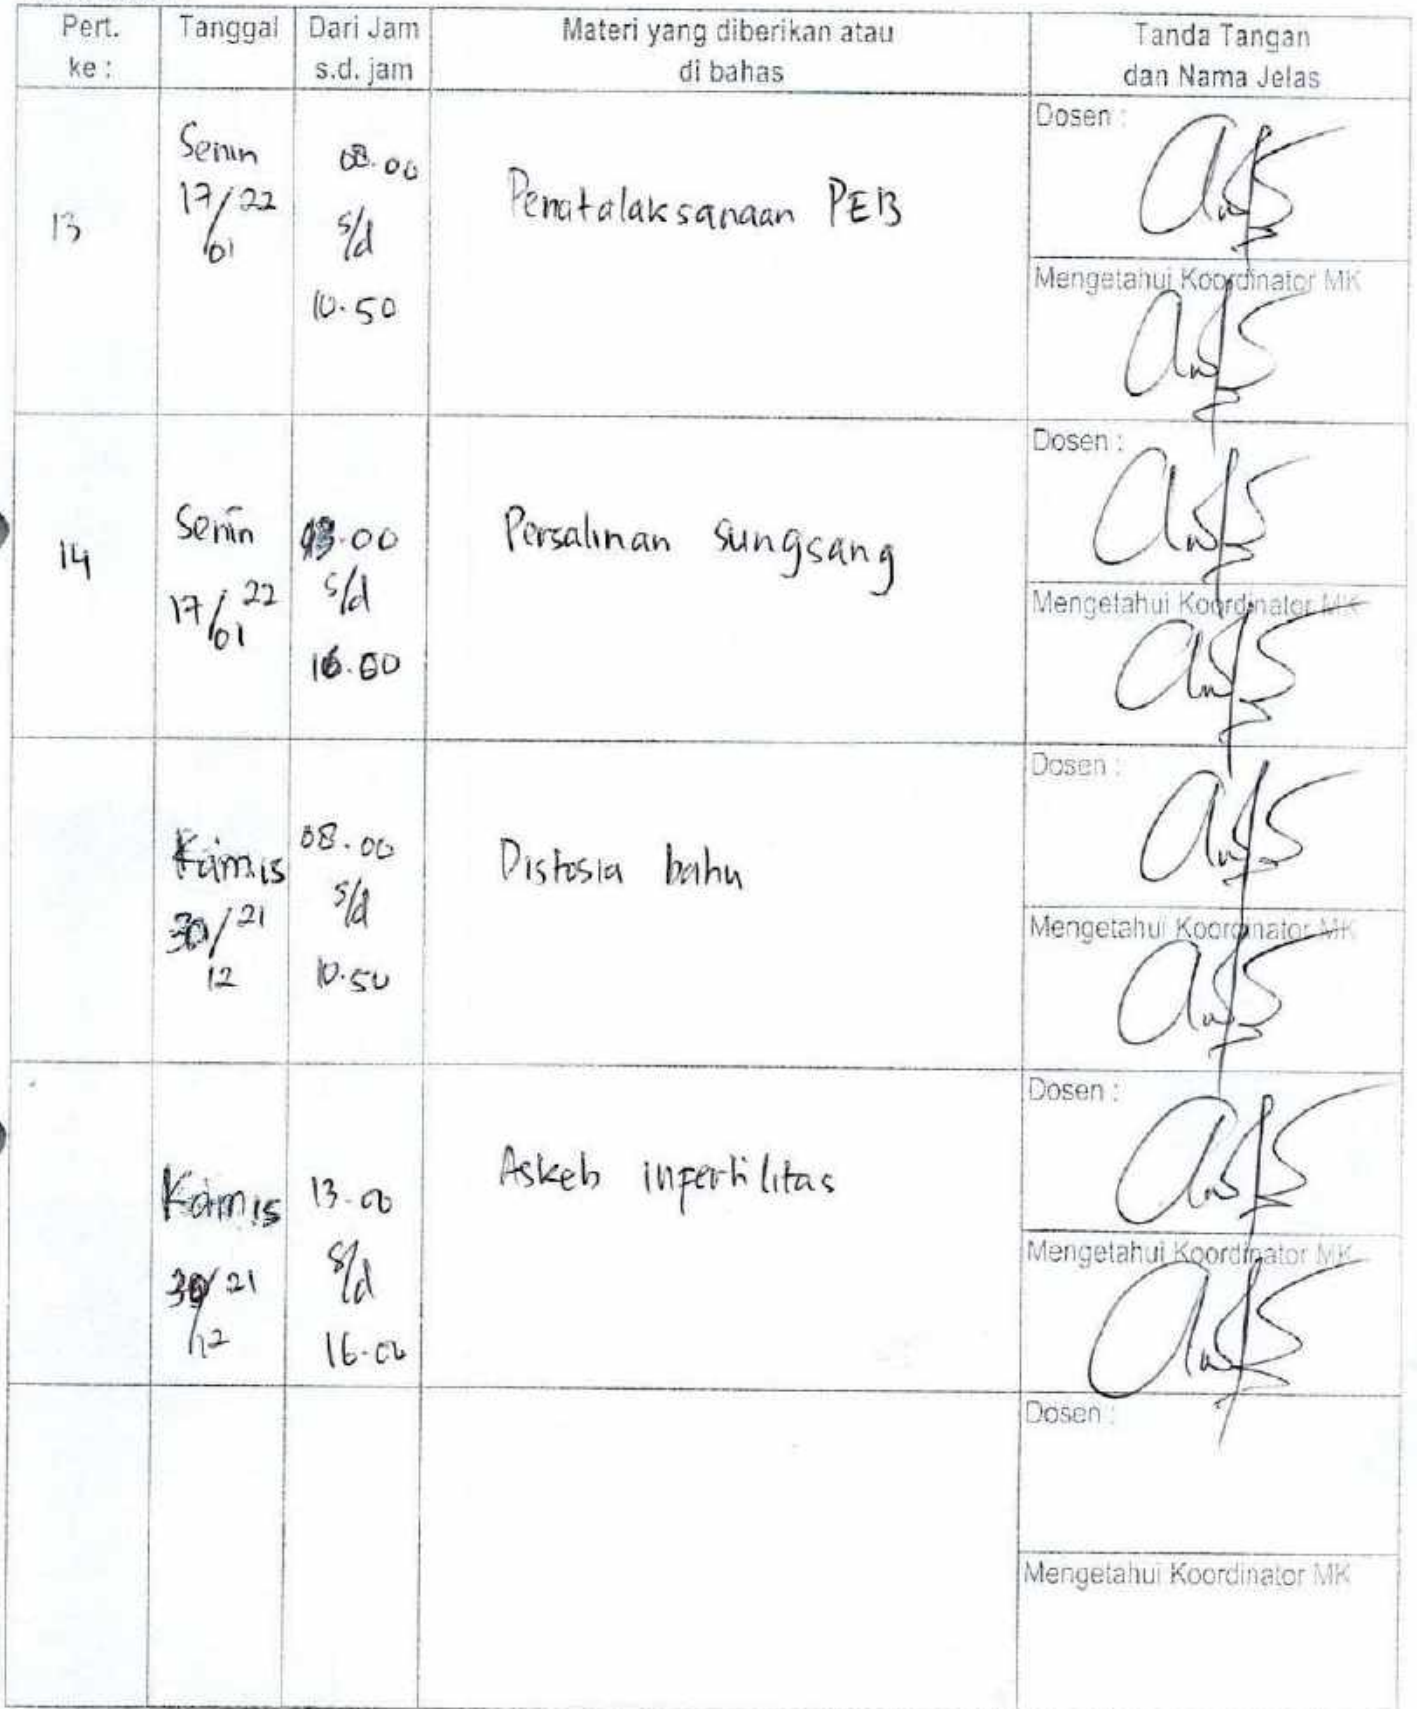 Pert. ke :
Tanggal
Dari Jam s.d. jam
Materi yang diberikan atau di bahas
Tanda Tangan dan Nama Jelas
13
Senin
17/22
01
08.00
s/d
10.50
Penatalaksanaan PEB
Dosen :
Mengetahui Koordinator MK
14
Senin
17/22
01
13.00
s/d
Persalinan sungsang
Dosen :
Mengetahui Koordinator MK
Kamis
30/21
12
08.00
s/d
10.50
Distosia bahu
Dosen :
Mengetahui Koordinator MK
Kamis
30/21
12
13.00
s/d
16.00
Askeb infertilitas
Dosen :
Mengetahui Koordinator MK
Dosen :
Mengetahui Koordinator MK